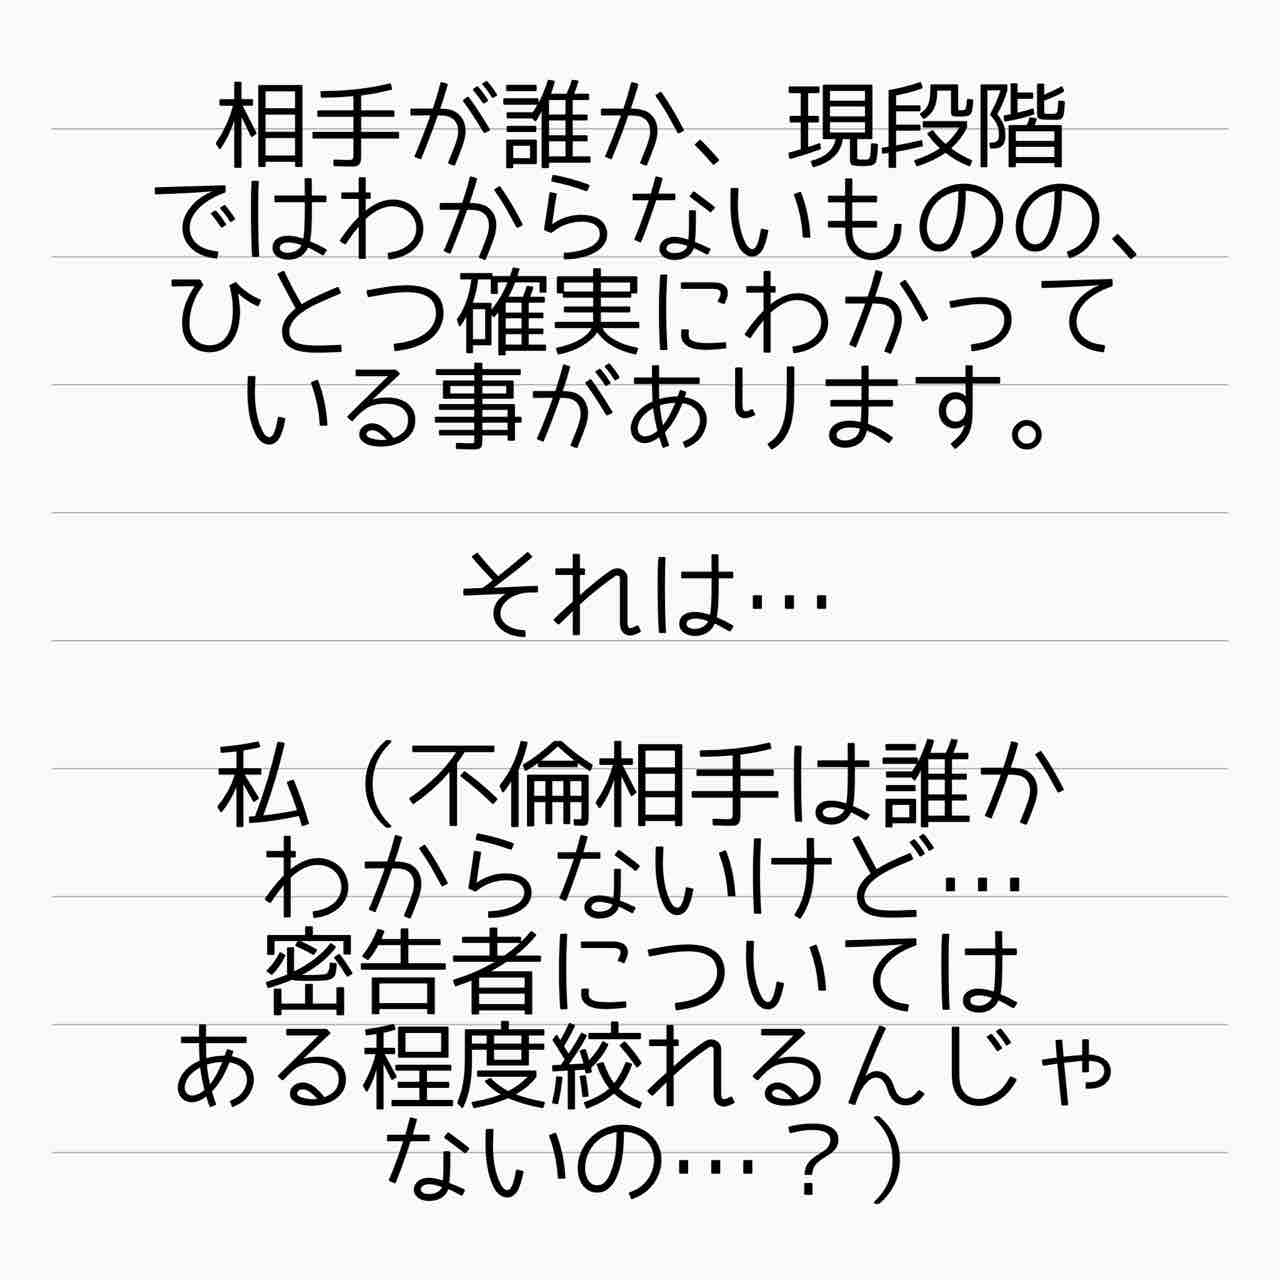 相手が誰か、現段階
ではわからないものの、
ひとつ確実にわかって
いる事があります。
それは…
私（不倫相手は誰か
わからないけど…
密告者については
ある程度絞れるんじゃ
ないの…？）